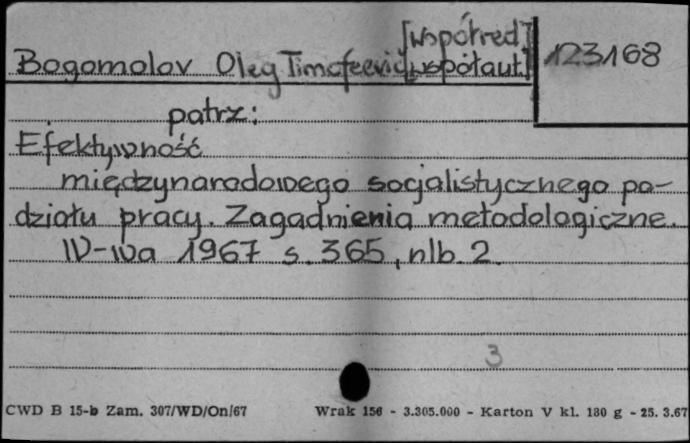 [współred]
Bogomolov Oleg Timofeevič [współaut.]
123168
patrz:
Efektywność
międzynarodowego socjalistycznego po-
działu pracy. Zagadnienia metodologiczne.
W-wa 1967 s. 365, nlb. 2.
3
CWD B 15-b Zam. 307/WD/On/67 Wrak 156 - 3.305.000 - Karton V kl. 180 g - 25. 3.67